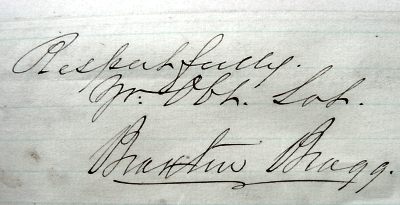 Respectfully.
Yr. Obt. Svt.
Braxton Bragg.